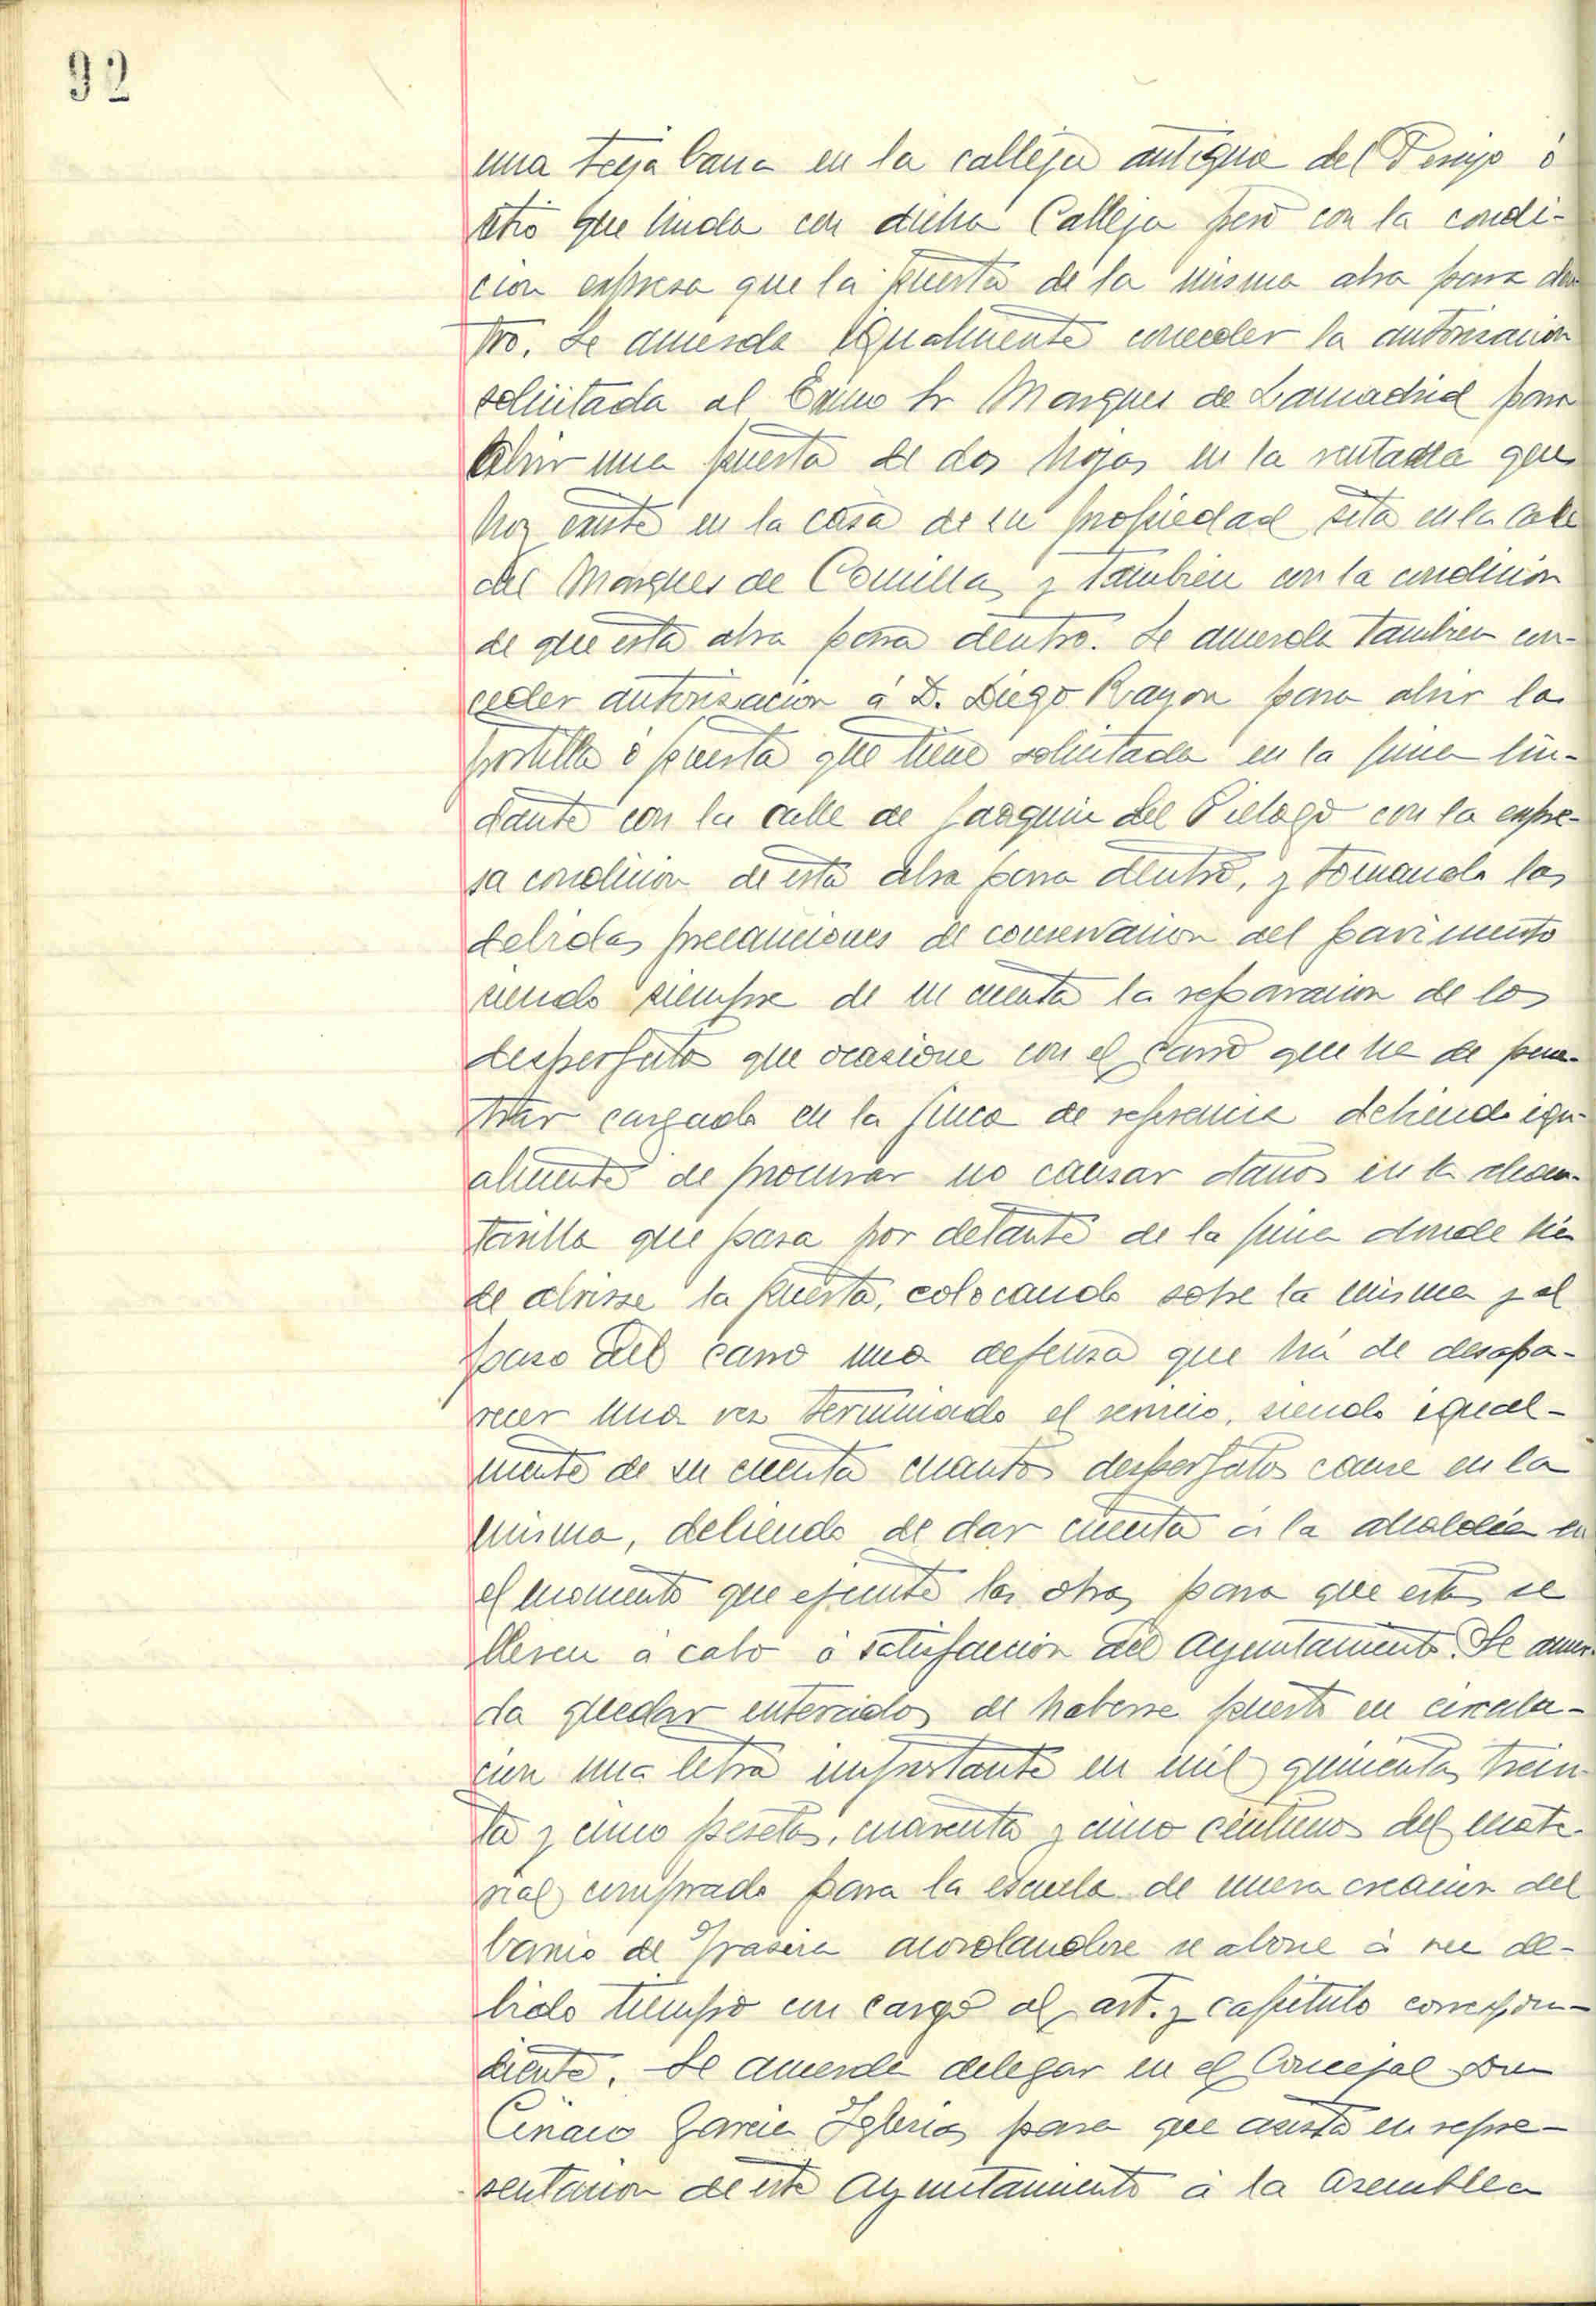 92
una teja bana en la calleja antigua del ó
sitio que linda con dicha Calleja pero con la condi-
cion expresa que la puerta de la misma abra para den
tro. Se acuerda igualmente conceder la autorizacion
solicitada al Excmo Sr Marques de Lamadrid para
abrir una puerta de dos hojas en la ventana que
hoy existe en la casa de su propiedad sita en la calle
del Marques de Comillas y tambien con la condicion
de que esta abra para dentro. Se acuerda tambien con-
ceder autorizacion á D. Diego Rayon para abrir la
portilla ó puerta que tiene solicitada en la finca lin-
dante con la calle de Joaquin del Pielago con la expre-
sa condicion de esta abra para dentro, y tomando las
debidas precauciones de conservacion del pavimento
siendo siempre de su cuenta la reparacion de los
desperfectos que ocasione con el carro que ha de pene-
trar cargado en la finca de referencia debiendo igu-
almente de procurar no causar daños en la alcan-
tarilla que pasa por delante de la finca donde ha
de abrirse la puerta, colocando sobre la misma y al
paso del carro una defensa que há de desapa-
recer una vez terminado el servicio, siendo igual-
mente de su cuenta cuantos desperfectos cause en la
misma, debiendo de dar cuenta á la alcaldia en
el momento que ejecute las obras para que estas se
lleven á cabo á satisfaccion del Ayuntamiento. Se acuer-
da quedar enterados de haberse puesto en circula-
cion una letra importante en mil quinientas trein
ta y cinco pesetas, cuarenta y cinco centimos del mate-
rial comprado para la escuela de nueva creacion del
barrio de Trasvia acordandose se abone á su de-
bido tiempo con cargo al art. y capitulo correspon-
diente. Se acuerda delegar en el Concejal Don
Ciriaco Garcia Iglesias para que asista en repre-
sentacion de este Ayuntamiento á la asamblea